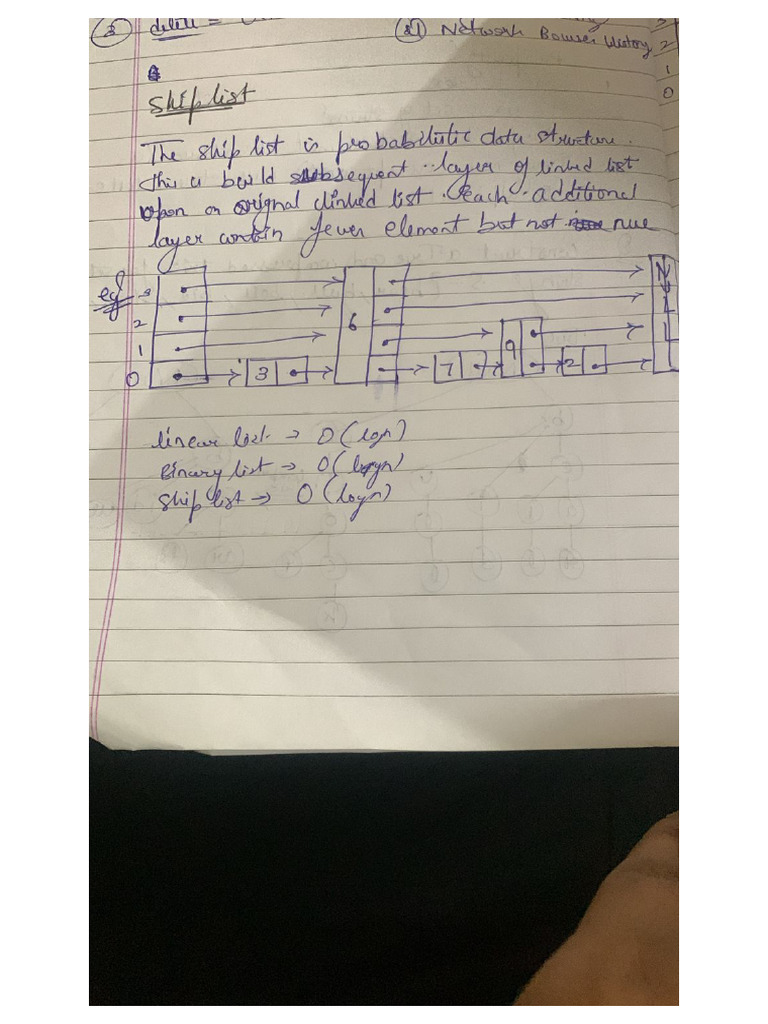 ② delete =
(21) Network Bowser History
2
1
0
Skip list
The skip list is probabilistic data structure.
this is build subsequent layer of linked list
upon on orignal linked list. Each additional
layer contain fewer element but not
eg 3
2
1
0
3
6
7
9
2
NULL
linear list → O(
binary list → O(logn)
skip list → O(logn)